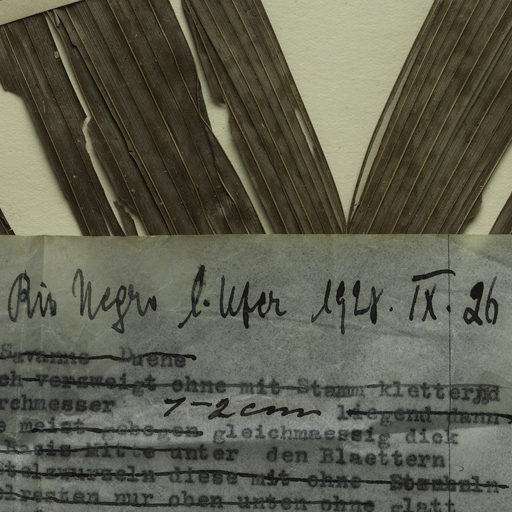 Rio Negro l. Ufer 1928. IX. 26
Savanne Duene
ch versweigt ohne mit Stamm kletternd
rchmesser 1-2 cm liegend dann
e meist gebogen gleichmaessig dick
basis Mitte unter den Blaettern
telzwurzeln diese mit ohne Stacheln
elresten nur oben unten ohne glatt